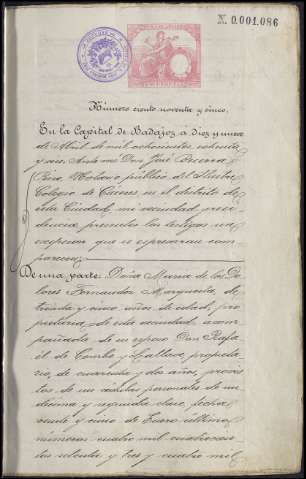 N. 0.001.086
Número ciento noventa y cinco.
En la Capital de Badajoz a diez y nueve
de Abril de mil ochocientos ochenta
y seis. Ante mi Don José
Notario público del Ilustre
Colegio de Cáceres en el distrito de
esta Ciudad, mi vecindad y resi-
dencia, presentes los testigos sin
excepcion que se expresaran com-
parecen:
De una parte: Doña Maria de los Do-
lores Fernandez Marquesta, de
treinta y cinco años de edad, pro-
pietaria, de esta vecindad, acom-
pañada de su esposo Don Rafa-
el de propieta-
rio, de cuarenta y dos años, provis-
tos de sus cédulas personales de un-
decima y segunda clase, fecha
veinte y cinco de Enero último
números cuatro mil cuatrocien-
tos setenta y tres y cuatro mil